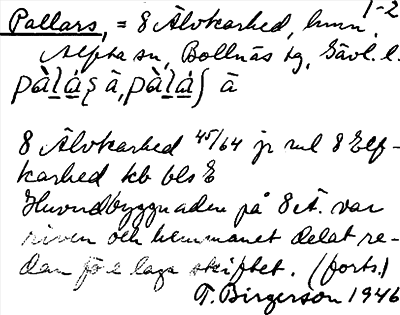 1-2
Pallars, = 8 Älvkarhed, hmn,
Alfta sn, Bollnäs tg, Gävl. l.
8 Älvkarhed 45/64 jr ml 8 Elf-
karhed kb bls E
Huvudbyggnaden på 8 Ä. var
riven och hemmanet delat re-
dan före laga skiftet. (forts.)
T. Birgerson 1946